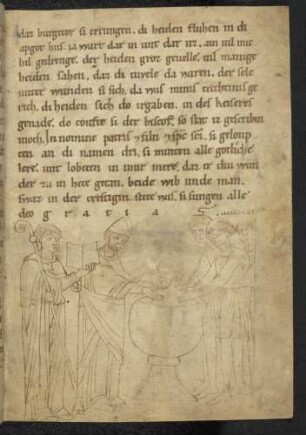 daz burgetor si errungen. di heiden fluhen in di
apgot hus. ia wart dar in unt dar uz. ain vil mi
hil gedrenge. der heiden groz gevelle. vil manige
heiden sahen. daz di tuvele da waren. der sele
unter wunden si sich. da wuͦs mīnis rechtennis ge
rich. di heiden sich do irgaben. in des keiseres
genade. do toufte si der biscof. so stat iz gescriben
noch. In nomine patris ⁊ filii ⁊ spc sci. si geloup
ten an di namen dri. si minten alle gotliche
lere. unt lobeten in imir mere. daz er diu wun
der zu in hete getan. beide wib unde man.
swaz in der cristinin stete was. si sungen alle
deo g r a t i a s